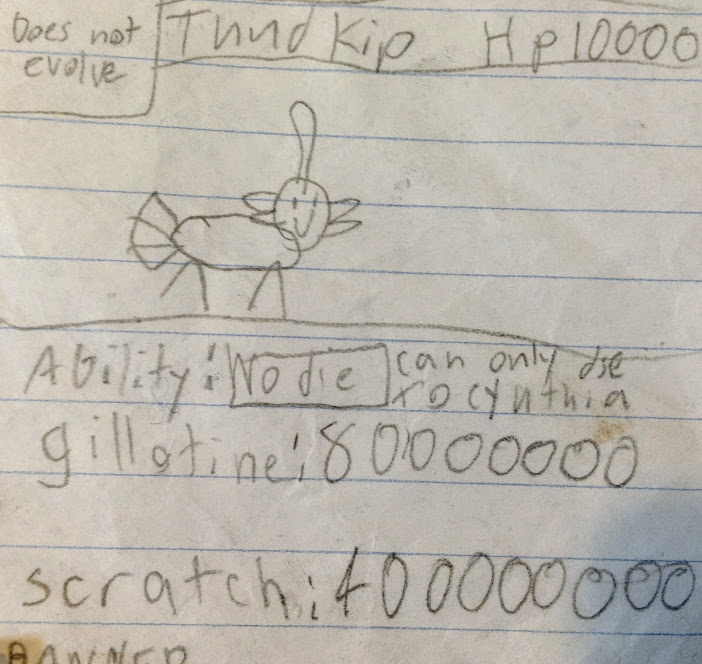 Does not
evolve
Tnnd Kip Hp10000
Ability: No die can only die
to cynthia
gillotine: 80000000
scratch: 400000000
BANNED